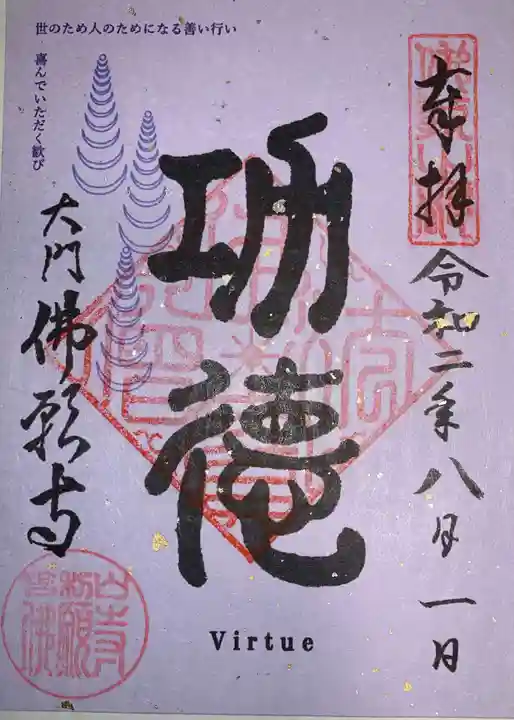 世のため人のためになる善い行い
喜んでいただく歓び
奉拝
令和二年八月一日
功徳
大門
佛願寺
Virtue